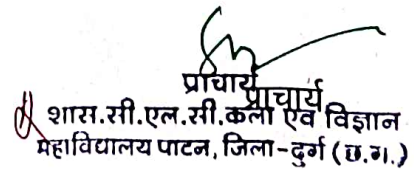 प्राचार्य
प्राचार्य
शास.सी.एल.सी.कला एवं विज्ञान
महाविद्यालय पाटन, जिला-दुर्ग (छ.ग.)